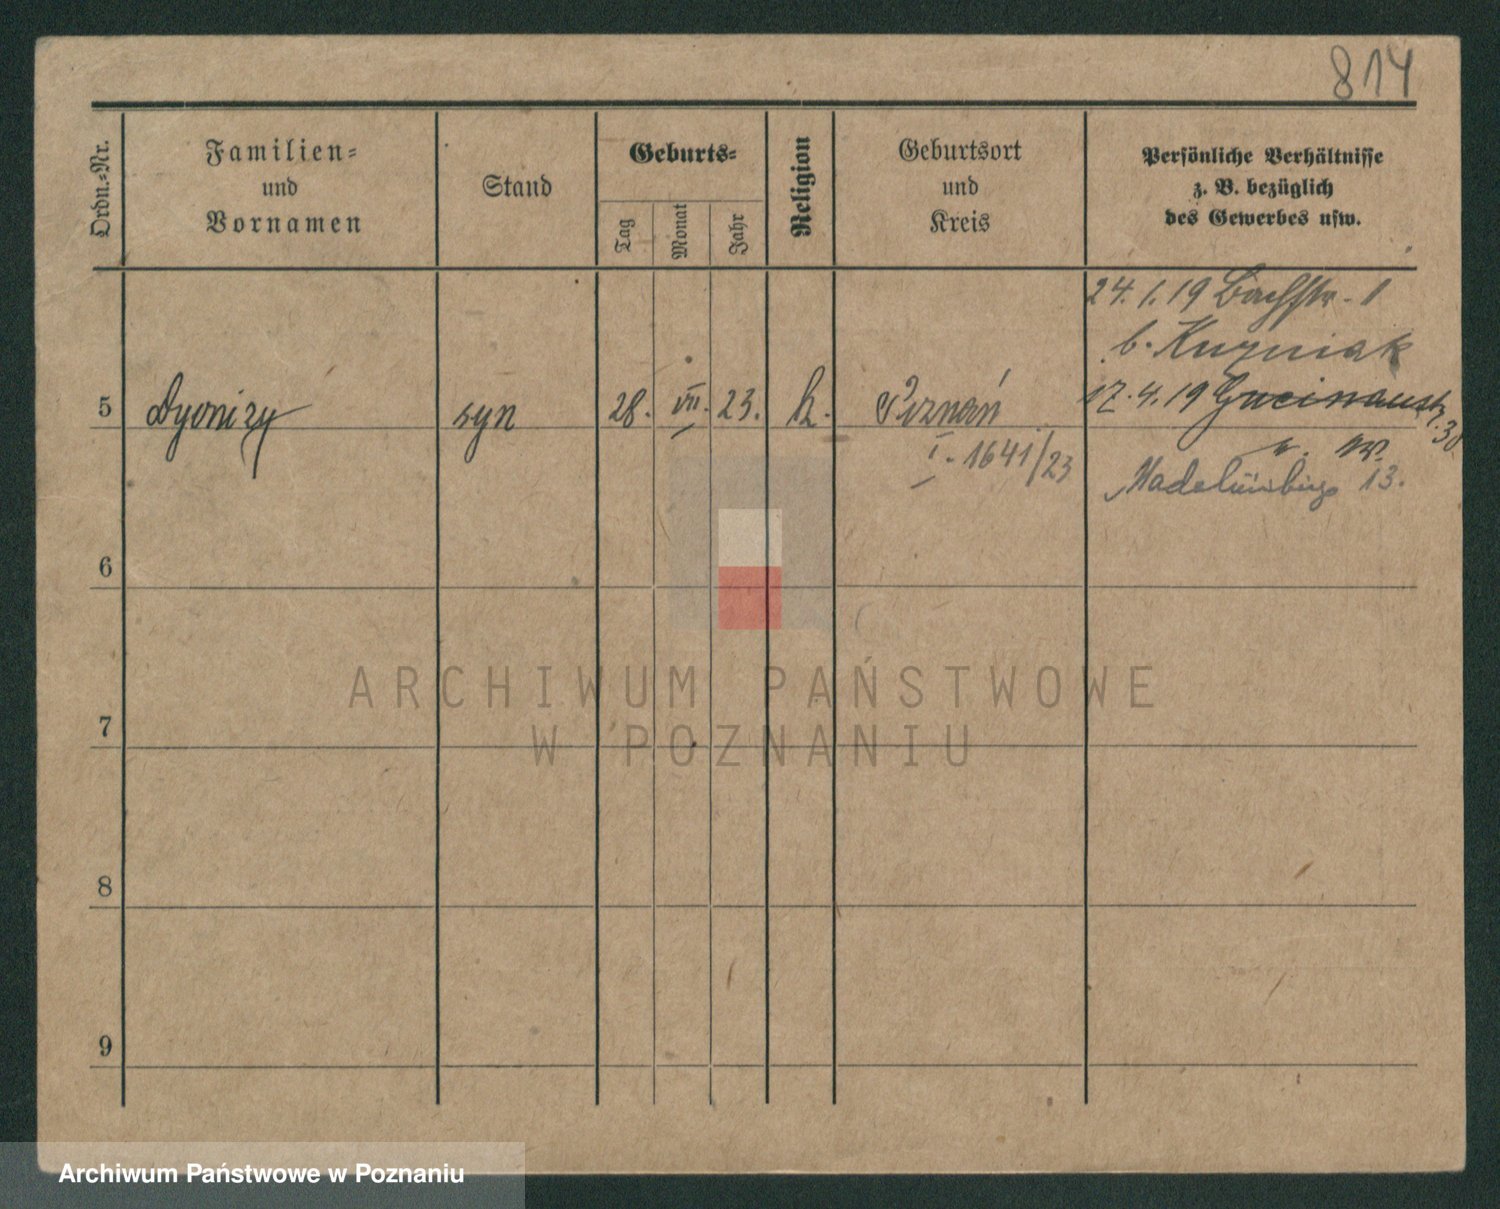 814
Ordn.-Nr.
Familien-
und
Vornamen
Stand
Geburts-
Tag
Monat
Jahr
Religion
Geburtsort
und
Kreis
Persönliche Verhältnisse
z. B. bezüglich
des Gewerbes usw.
24. 1. 19 Bachstr. 1
b. Kuzniak
5 Dyonizy syn 28. VII. 23. k. Poznań
17. 4. 19 Gneisenaustr. 30
I. 1641/23
13.
6
7
8
9
ARCHIWUM PAŃSTWOWE
W POZNANIU
Archiwum Państwowe w Poznaniu